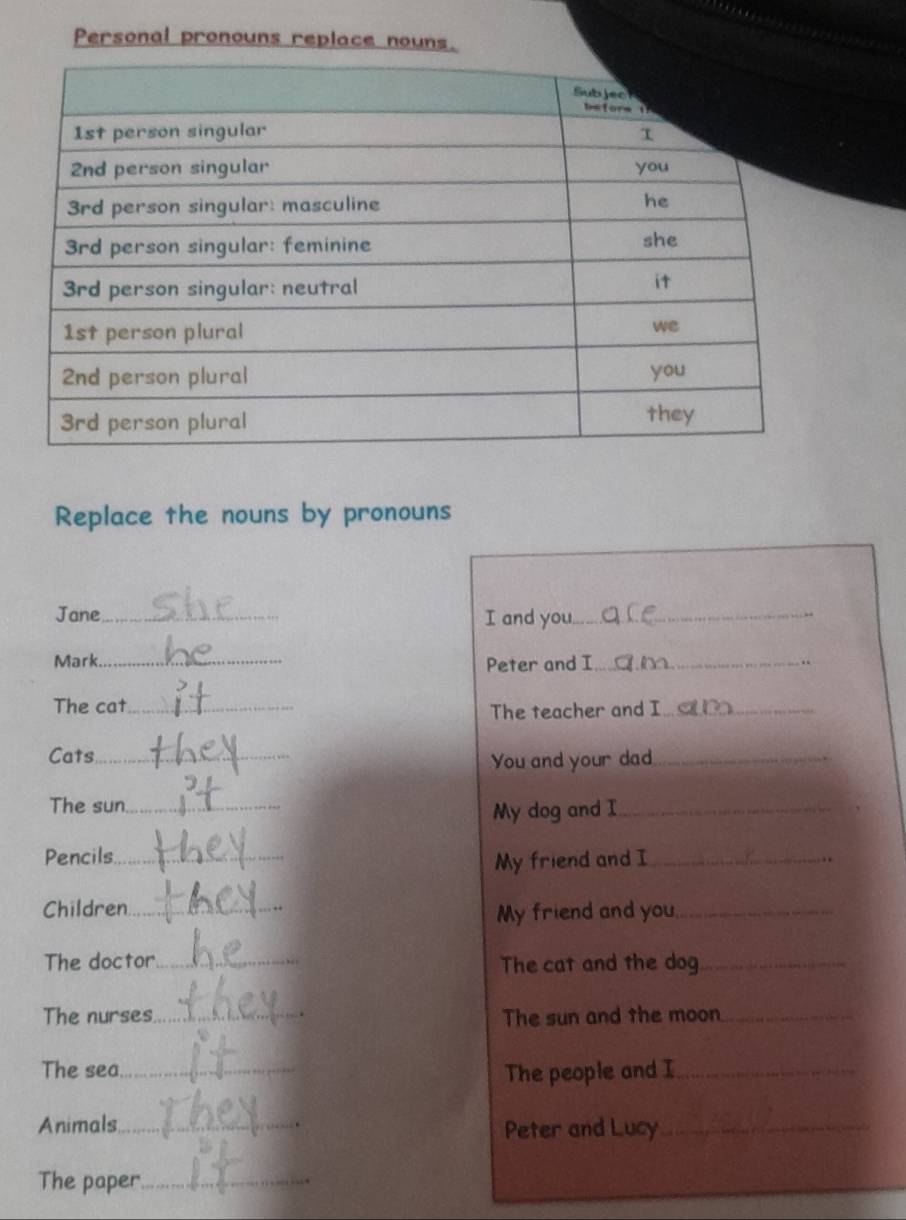 Personal pronouns replace nouns.
Subject
before
1st person singular I
2nd person singular you
3rd person singular: masculine he
3rd person singular: feminine she
3rd person singular: neutral it
1st person plural we
2nd person plural you
3rd person plural they
Replace the nouns by pronouns
Jane she
Mark he
The cat it
Cats they
The sun it
Pencils they
Children they
The doctor he
The nurses they
The sea it
Animals They
The paper it
I and you are
Peter and I am
The teacher and I am
You and your dad
My dog and I
My friend and I
My friend and you
The cat and the dog
The sun and the moon
The people and I
Peter and Lucy